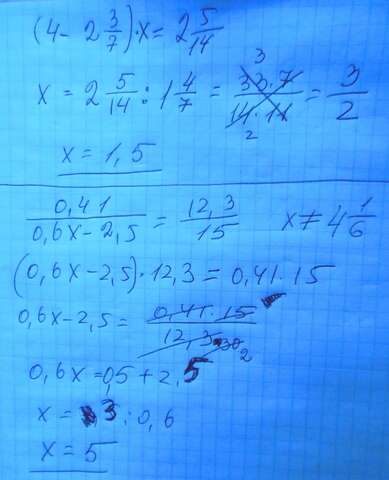 (4 - 2 3/7) · x = 2 5/14
x = 2 5/14 : 1 4/7 = 33·7/14·11 = 3/2
3
2
x = 1,5
0,41/(0,6x - 2,5) = 12,3/15 x ≠ 4 1/6
(0,6x - 2,5) · 12,3 = 0,41 · 15
0,6x - 2,5 = 0,41 · 15/12,3
2
0,6x = 0,5 + 2,5
x = 3 : 0,6
x = 5